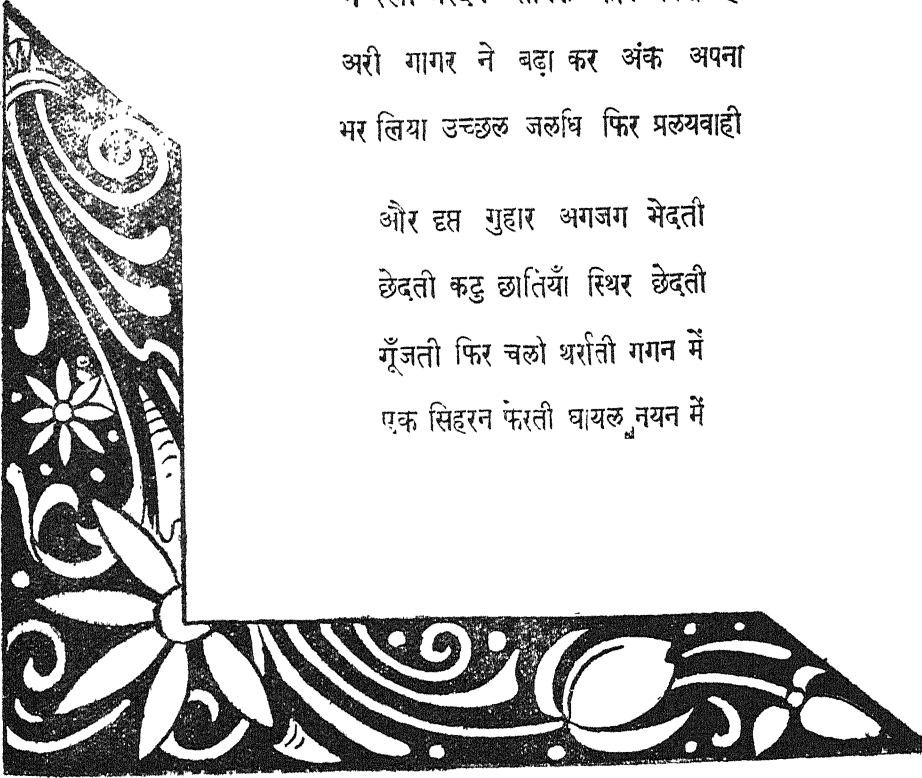 अरी गागर ने बढ़ा कर अंक अपना
भर लिया उच्छल जलधि फिर प्रलयवाही
और दृप्त गुहार अगजग भेदती
छेदती कटु छातियाँ स्थिर छेदती
गूँजती फिर चलो थर्राती गगन में
एक सिहरन फेरती घायल नयन में